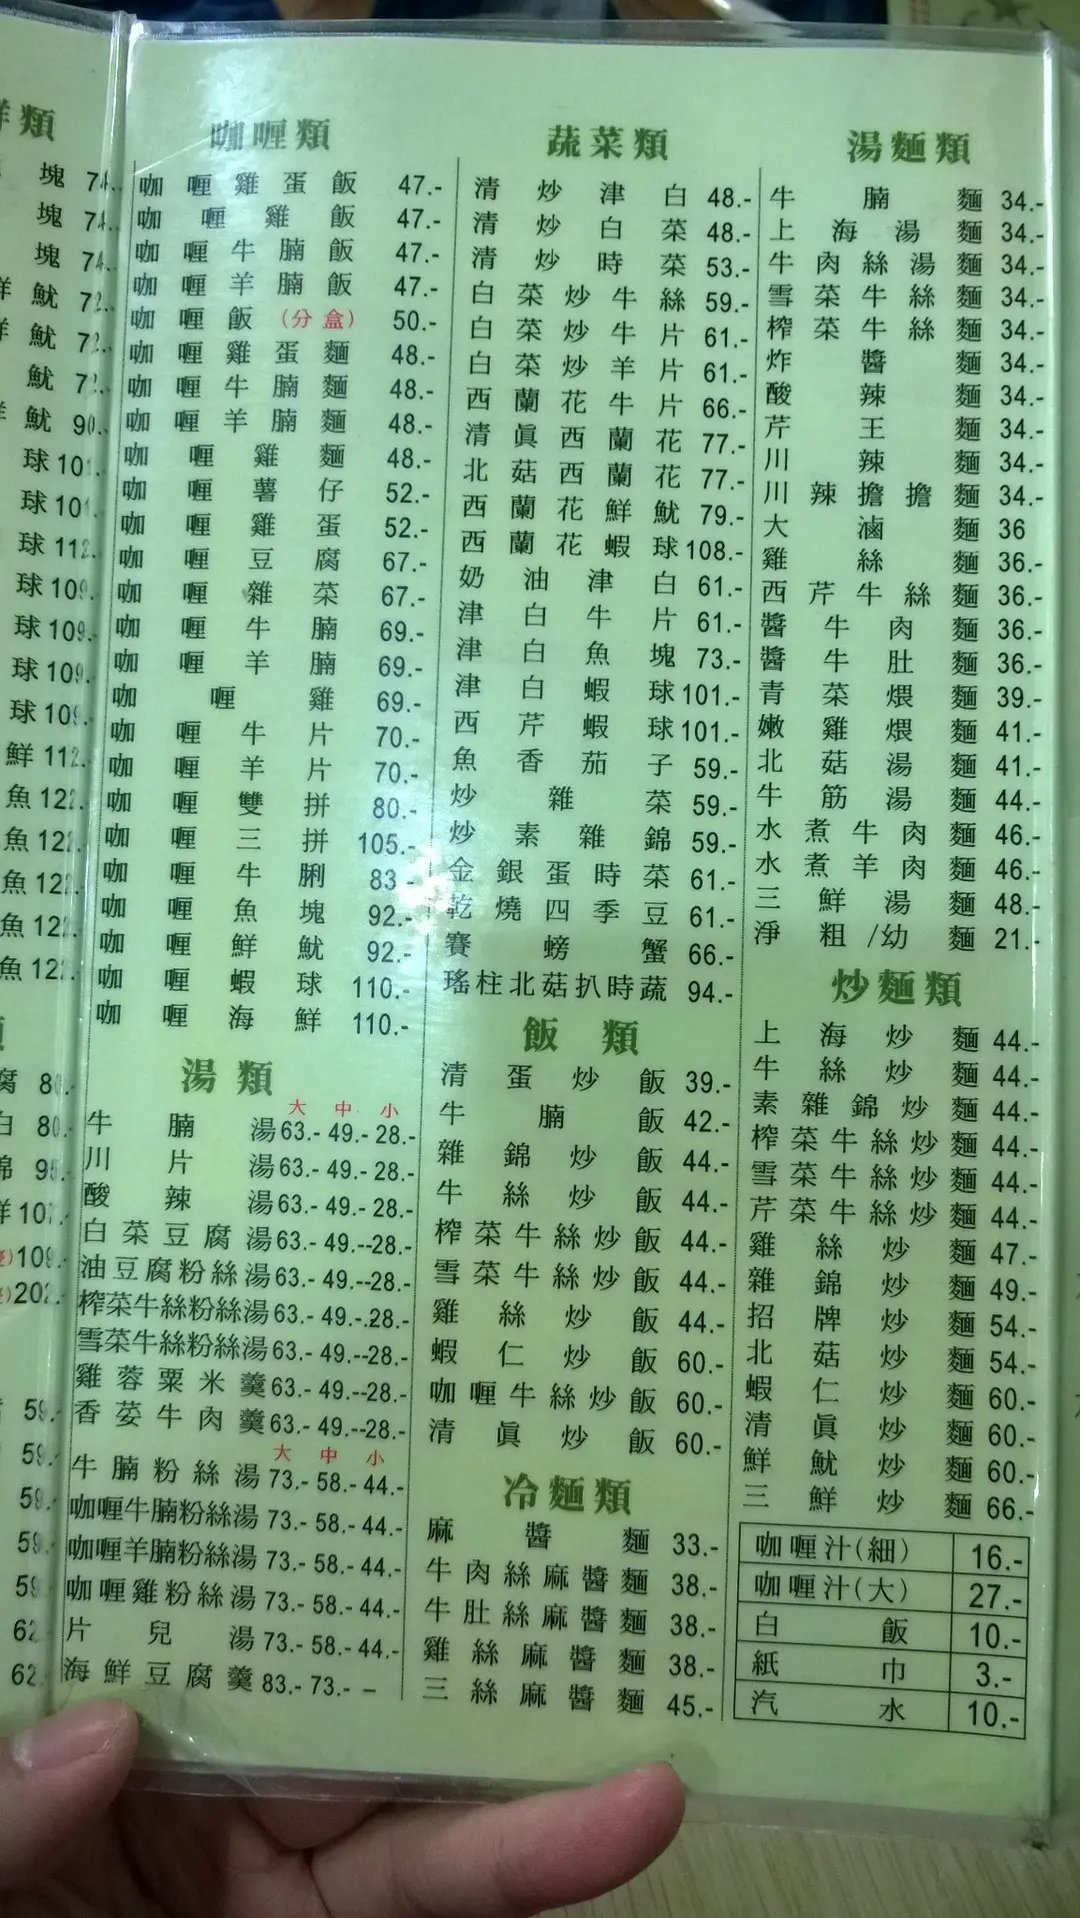 鮮類
塊 74.-
塊 74.-
塊 74.-
魷 72.-
魷 72.-
魷 72.-
魷 90.-
球 101.-
球 101.-
球 112.-
球 109.-
球 109.-
球 109.-
球 109.-
鮮 112.-
魚 122.-
魚 122.-
魚 122.-
魚 122.-
魚 122.-
80.-
80.-
95.-
107.-
109.-
202.-
59.-
59.-
59.-
59.-
59.-
62.-
62.-
咖喱類
咖喱雞蛋飯 47.-
咖喱雞飯 47.-
咖喱牛腩飯 47.-
咖喱羊腩飯 47.-
咖喱飯(分盒) 50.-
咖喱雞蛋麵 48.-
咖喱牛腩麵 48.-
咖喱羊腩麵 48.-
咖喱雞麵 48.-
咖喱薯仔 52.-
咖喱雞蛋 52.-
咖喱豆腐 67.-
咖喱雜菜 67.-
咖喱牛腩 69.-
咖喱羊腩 69.-
咖喱雞 69.-
咖喱牛片 70.-
咖喱羊片 70.-
咖喱雙拼 80.-
咖喱三拼 105.-
咖喱牛脷 83-
咖喱魚塊 92.-
咖喱鮮魷 92.-
咖喱蝦球 110.-
咖喱海鮮 110.-
湯類
大 中 小
牛腩湯 63.- 49.- 28.-
川片湯 63.- 49.- 28.-
酸辣湯 63.- 49.- 28.-
白菜豆腐湯 63.- 49.--28.-
油豆腐粉絲湯 63.- 49.--28.-
榨菜牛絲粉絲湯 63.- 49.--28.-
雪菜牛絲粉絲湯 63.- 49.--28.-
雞蓉粟米羹 63.- 49.--28.-
香荽牛肉羹 63.- 49.--28.-
大 中 小
牛腩粉絲湯 73.- 58.- 44.-
咖喱牛腩粉絲湯 73.- 58.- 44.-
咖喱羊腩粉絲湯 73.- 58.- 44.-
咖喱雞粉絲湯 73.- 58.- 44.-
片兒湯 73.- 58.- 44.-
海鮮豆腐羹 83.- 73.- –
蔬菜類
清炒津白 48.-
清炒白菜 48.-
清炒時菜 53.-
白菜炒牛絲 59.-
白菜炒牛片 61.-
白菜炒羊片 61.-
西蘭花牛片 66.-
清眞西蘭花 77.-
北菇西蘭花 77.-
西蘭花鮮魷 79.-
西蘭花蝦球 108.-
奶油津白 61.-
津白牛片 61.-
津白魚塊 73.-
津白蝦球 101.-
西芹蝦球 101.-
魚香茄子 59.-
炒雜菜 59.-
炒素雜錦 59.-
金銀蛋時菜 61.-
乾燒四季豆 61.-
賽螃蟹 66.-
瑤柱北菇扒時蔬 94.-
飯類
清蛋炒飯 39.-
牛腩飯 42.-
雜錦炒飯 44.-
牛絲炒飯 44.-
榨菜牛絲炒飯 44.-
雪菜牛絲炒飯 44.-
雞絲炒飯 44.-
蝦仁炒飯 60.-
咖喱牛絲炒飯 60.-
清眞炒飯 60.-
冷麵類
麻醬麵 33.-
牛肉絲麻醬麵 38.-
牛肚絲麻醬麵 38.-
雞絲麻醬麵 38.-
三絲麻醬麵 45.-
湯麵類
牛腩麵 34.-
上海湯麵 34.-
牛肉絲湯麵 34.-
雪菜牛絲麵 34.-
榨菜牛絲麵 34.-
炸醬麵 34.-
酸辣麵 34.-
芹王麵 34.-
川辣麵 34.-
川辣擔擔麵 34.-
大滷麵 36
雞絲麵 36.-
西芹牛絲麵 36.-
醬牛肉麵 36.-
醬牛肚麵 36.-
青菜煨麵 39.-
嫩雞煨麵 41.-
北菇湯麵 41.-
牛筋湯麵 44.-
水煮牛肉麵 46.-
水煮羊肉麵 46.-
三鮮湯麵 48.-
淨粗/幼麵 21.-
炒麵類
上海炒麵 44.-
牛絲炒麵 44.-
素雜錦炒麵 44.-
榨菜牛絲炒麵 44.-
雪菜牛絲炒麵 44.-
芹菜牛絲炒麵 44.-
雞絲炒麵 47.-
雜錦炒麵 49.-
招牌炒麵 54.-
北菇炒麵 54.-
蝦仁炒麵 60.-
清眞炒麵 60.-
鮮魷炒麵 60.-
三鮮炒麵 66.-
咖喱汁(細) 16.-
咖喱汁(大) 27.-
白飯 10.-
紙巾 3.-
汽水 10.-